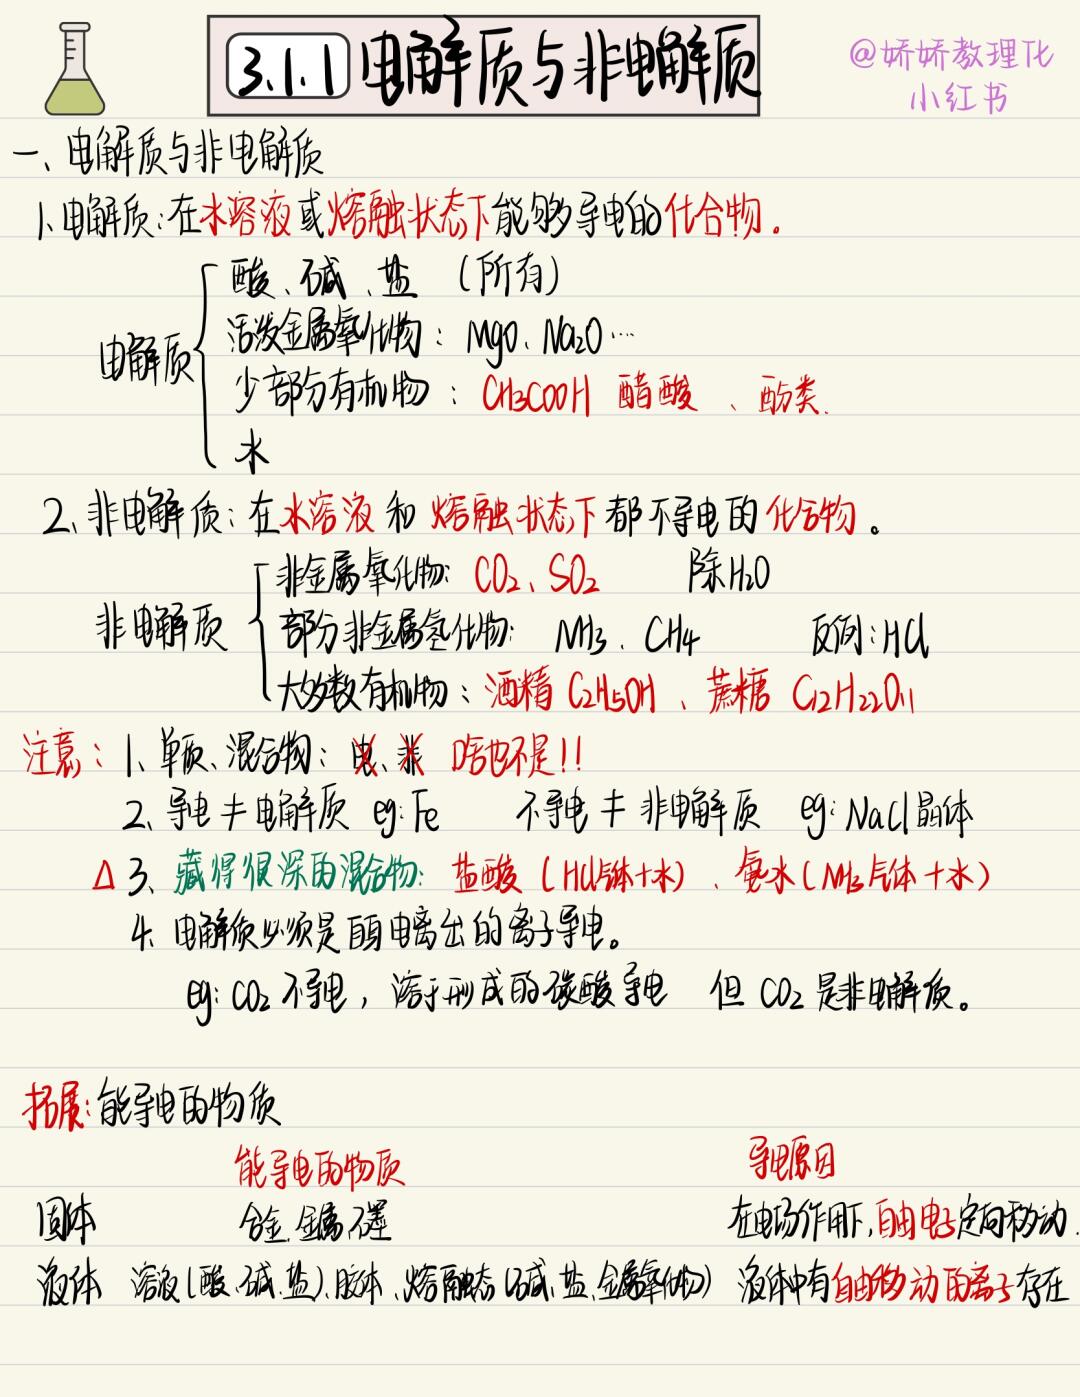 3.1.1 电解质与非电解质
@娇娇教理化
小红书
一、电解质与非电解质
1、电解质:在水溶液或熔融状态下能够导电的化合物。
电解质
酸、碱、盐 (所有)
活泼金属氧化物: MgO、Na2O…
少部分有机物: CH3COOH 醋酸 、酚类.
水
2、非电解质:在水溶液和熔融状态下都不导电的化合物。
非电解质
非金属氧化物: CO2、SO2 除H2O
部分非金属氢化物: NH3、CH4 反例:HCl
大多数有机物:酒精 C2H5OH、蔗糖 C12H22O11
注意: 1、单质、混合物: 电、非 啥也不是!!
2、导电≠电解质 eg:Fe 不导电≠非电解质 eg:NaCl晶体
△ 3、藏得很深的混合物: 盐酸 (HCl气体+水) 、氨水(NH3气体+水)
4、电解质必须是自身电离出的离子导电。
eg: CO2 不导电, 溶于形成的碳酸导电 但 CO2 是非电解质。
拓展:能导电的物质
能导电的物质 导电原因
固体 合金、金属、石墨 在电场作用下,自由电子定向移动.
液体 溶液(酸、碱、盐)、胶体、熔融态(碱、盐、金属氧化物) 液体中有自由移动的离子存在